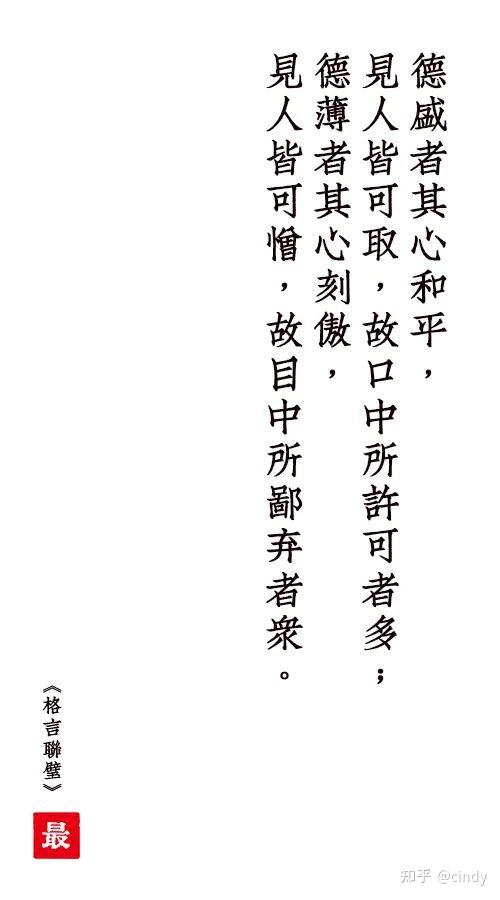 德盛者其心和平，
見人皆可取，故口中所許可者多；
德薄者其心刻傲，
見人皆可憎，故目中所鄙弃者衆。
《格言聯璧》
最
知乎 @cindy